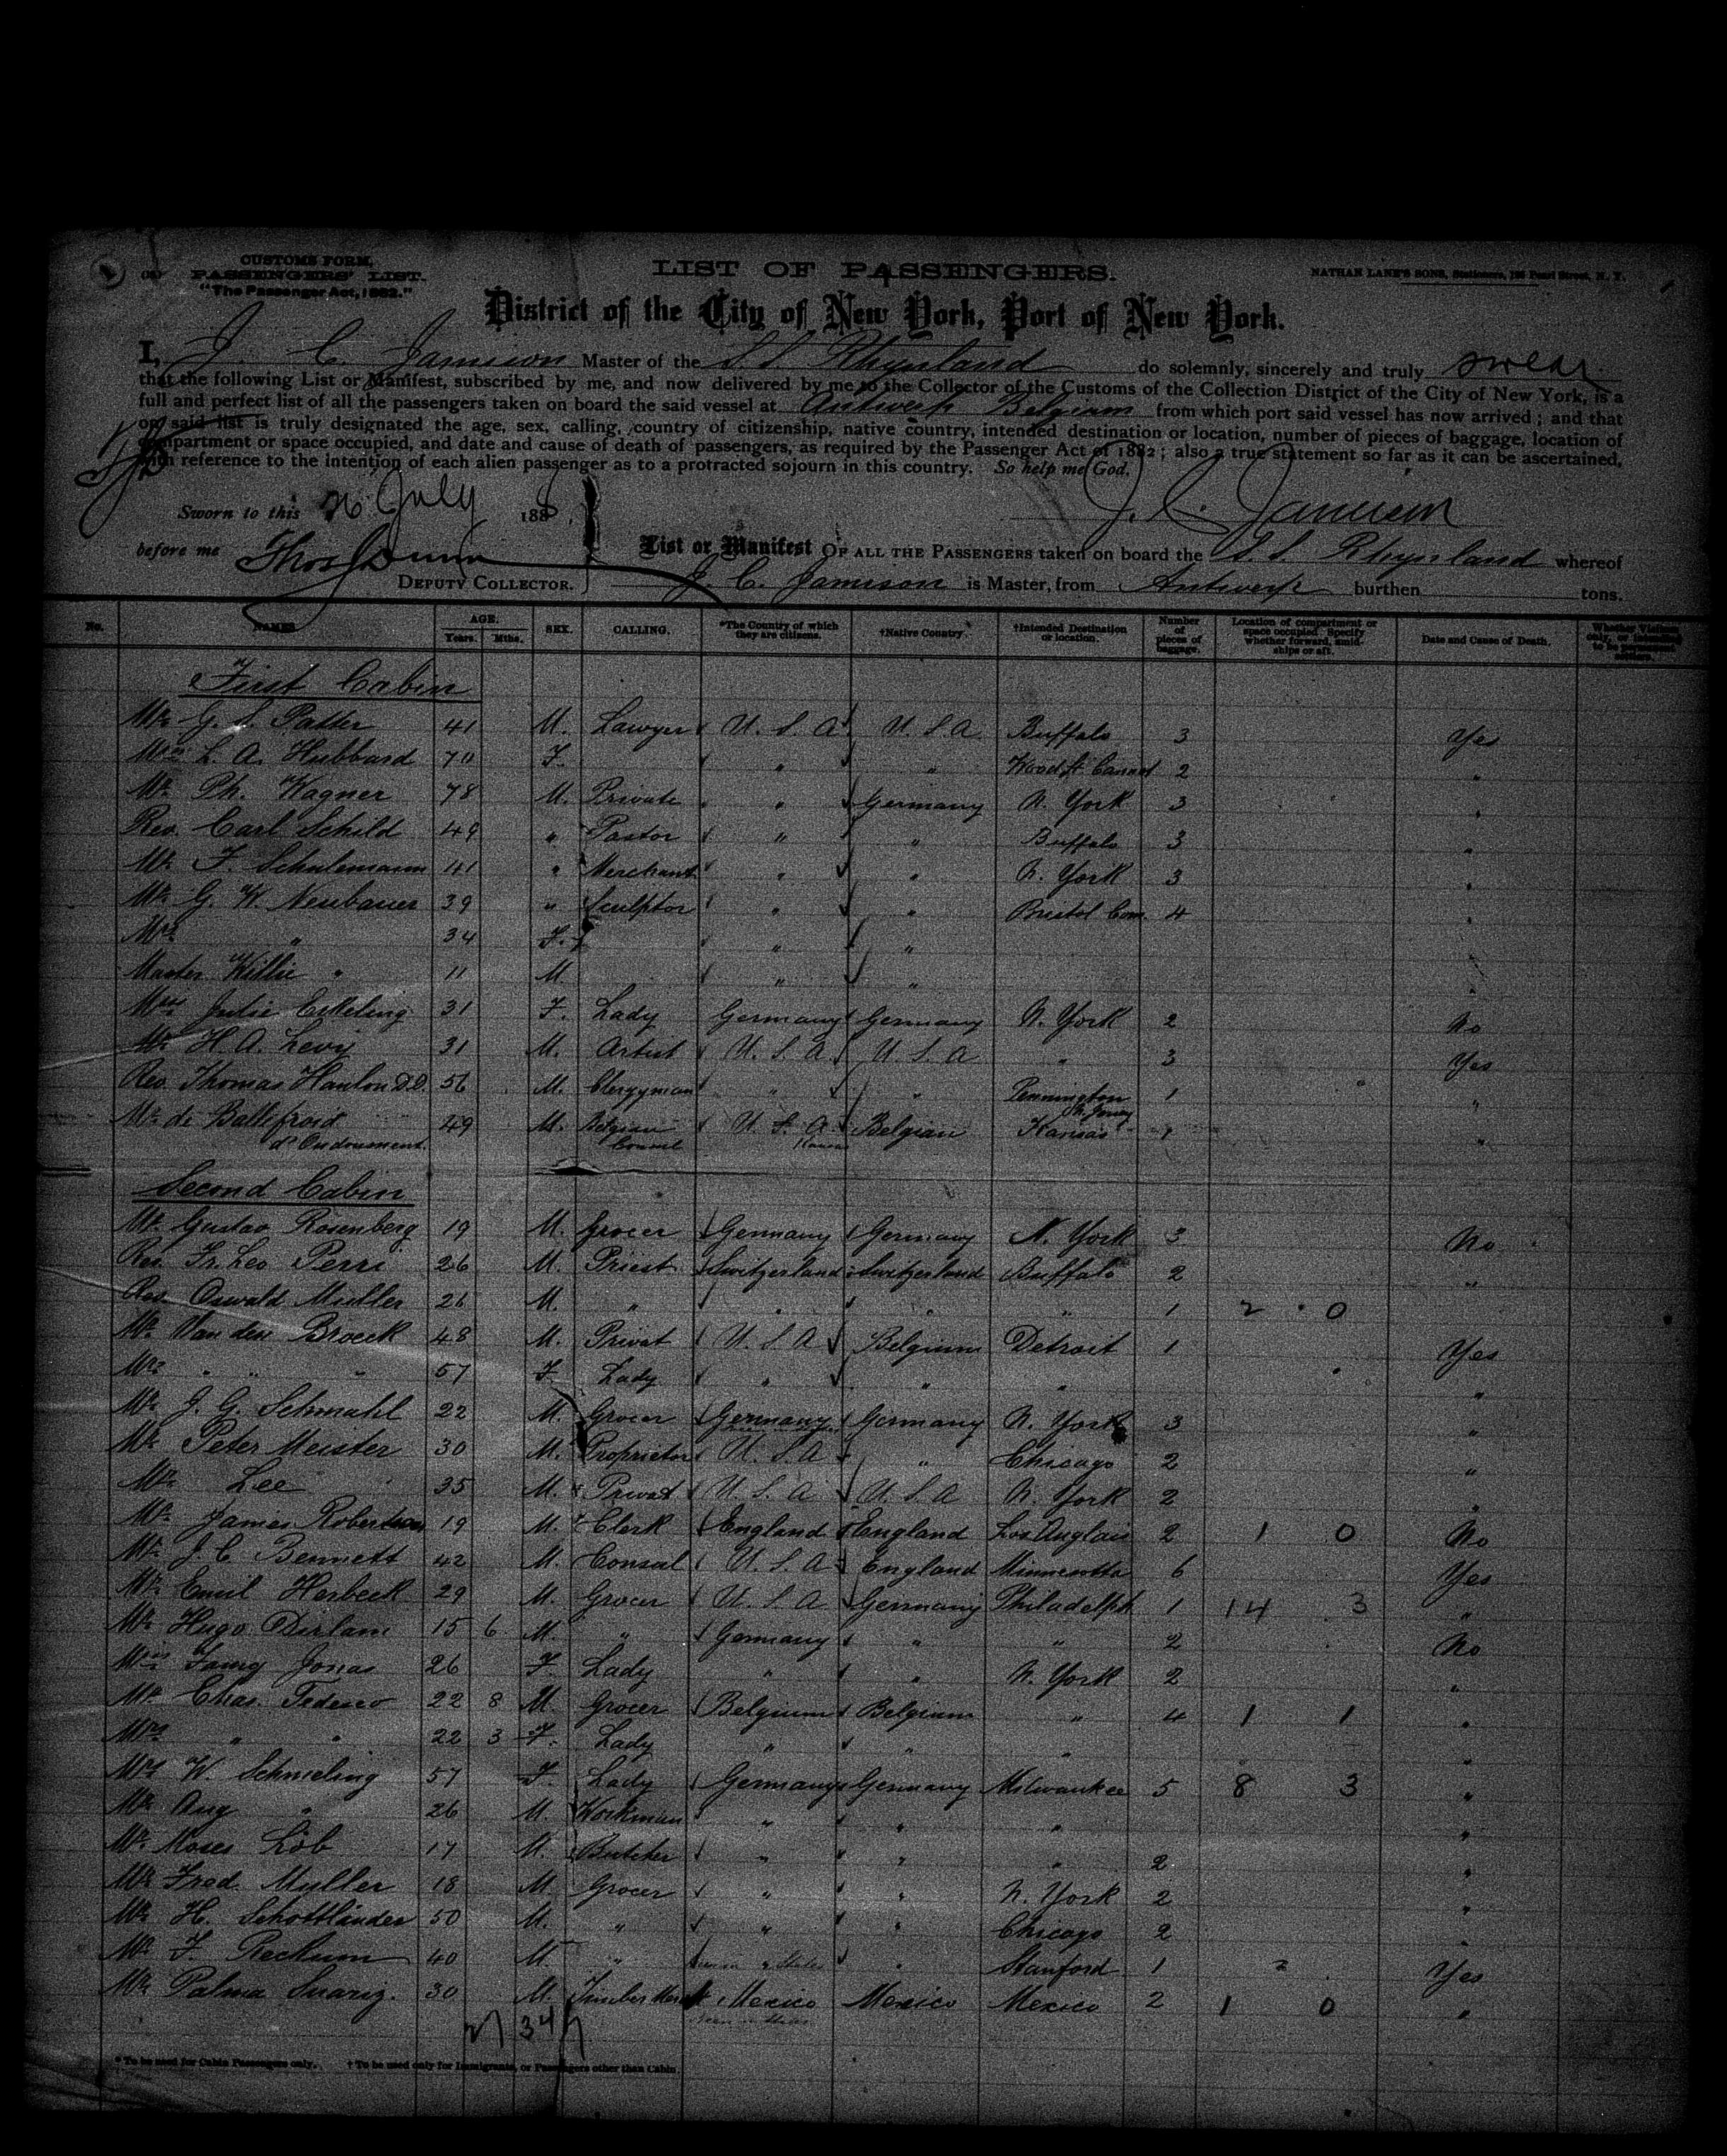 CUSTOMS FORM.
PASSENGERS' LIST.
"The Passenger Act, 1882."
LIST OF PASSENGERS.
NATHAN LANE'S SONS, Stationers, Pearl Street, N. Y.
District of the City of New York, Port of New York.
I, J. C. Jamison Master of the S.S. Rhynland do solemnly, sincerely and truly swear
that the following List or Manifest, subscribed by me, and now delivered by me to the Collector of the Customs of the Collection District of the City of New York, is a
full and perfect list of all the passengers taken on board the said vessel at Antwerp Belgium from which port said vessel has now arrived; and that
on said list is truly designated the age, sex, calling, country of citizenship, native country, intended destination or location, number of pieces of baggage, location of
compartment or space occupied, and date and cause of death of passengers, as required by the Passenger Act of 1882; also a true statement so far as it can be ascertained,
with reference to the intention of each alien passenger as to a protracted sojourn in this country. So help me God.
Sworn to this 26 July 188 J. C. Jamison
before me Thos Dunn
DEPUTY COLLECTOR.
List or Manifest OF ALL THE PASSENGERS taken on board the S.S. Rhynland whereof
J. C. Jamison is Master, from Antwerp burthen tons.
No. NAMES AGE. Years. Mths. SEX. CALLING. *The Country of which they are citizens. †Native Country. †Intended Destination or location. Number of pieces of baggage. Location of compartment or space occupied. Specify whether forward, amidships or aft. Date and Cause of Death.
First Cabin
Mr G. S. 41 M. Lawyer U. S. A U. S. A Buffalo 3 Yes
Mrs L. A. Hubbard 70 F. " " 2 "
Mr Ph. Wagner 78 M. Private " Germany N. York 3 "
Rev. Carl Schild 49 " Pastor " " Buffalo 3 "
Mr F. Schulemann 41 " Merchant " " N. York 3 "
Mr G. W. Neubauer 39 " Sculptor " " Bristol Con. 4 "
Mrs " 34 F. " "
Master Willie " 11 M. " "
Mrs Julie Eskeling 31 F. Lady Germany Germany N. York 2 No
Mr H. A. Levy 31 M. Artist U. S. A. U. S. A " 3 Yes
Rev. Thomas Hanlon D.D. 56 M. Clergyman " " Pennington N. Jersey 1 "
Mr de Ballefroid 49 M. Belgian Consul U. S. A Belgian Kansas 1 "
Second Cabin
Mr Gustav Rosenberg 19 M. Grocer Germany Germany N. York 3 No
Rev. Fr. Leo Perri 26 M. Priest Switzerland Switzerland Buffalo 2 "
Rev. Oswald Muller 26 M. " " " " 1 2 0
Mr Van den Broeck 48 M. Privat U. S. A Belgium Detroit 1 Yes
Mrs " " " 57 F. Lady " " " "
Mr J. G. Schmahl 22 M. Grocer Germany Germany N. York 3 "
Mr Peter Meister 30 M. Proprietor U. S. A " Chicago 2 "
Mr Lee 35 M. Privat U. S. A U. S. A N. York 2 "
Mr James Robertson 19 M. Clerk England England Los Anglais 2 1 0 No
Mr J. C. Bennett 42 M. Consul U. S. A England Minnesotta 6 Yes
Mr Emil Herbeck 29 M. Grocer U. S. A Germany Philadelph 1 14 3 "
Mr Hugo Dirlam 15 6 M. " Germany " " 2 No
Miss Fanny Jonas 26 F. Lady " " N. York 2 "
Mr Chas. Tedesco 22 8 M. Grocer Belgium Belgium " 4 1 1 "
Mrs " " 22 3 F. Lady " " " "
Mrs W. Schmeling 57 F. Lady Germany Germany Milwaukee 5 8 3 "
Mr Aug " 26 M. Workman " " " "
Mr Moses Löb 17 M. Butcher " " " 2 "
Mr Fred. Muller 18 M. Grocer " " N. York 2 "
Mr H. Schottländer 50 M. " " " Chicago 2 "
Mr F. Reckum 40 M. " " Stanford 1 Yes
Mr Palma Suarig. 30 M. Mexico Mexico Mexico 2 1 0 "
34
* To be used for Cabin Passengers only. † To be used only for Immigrants, or Passengers other than Cabin